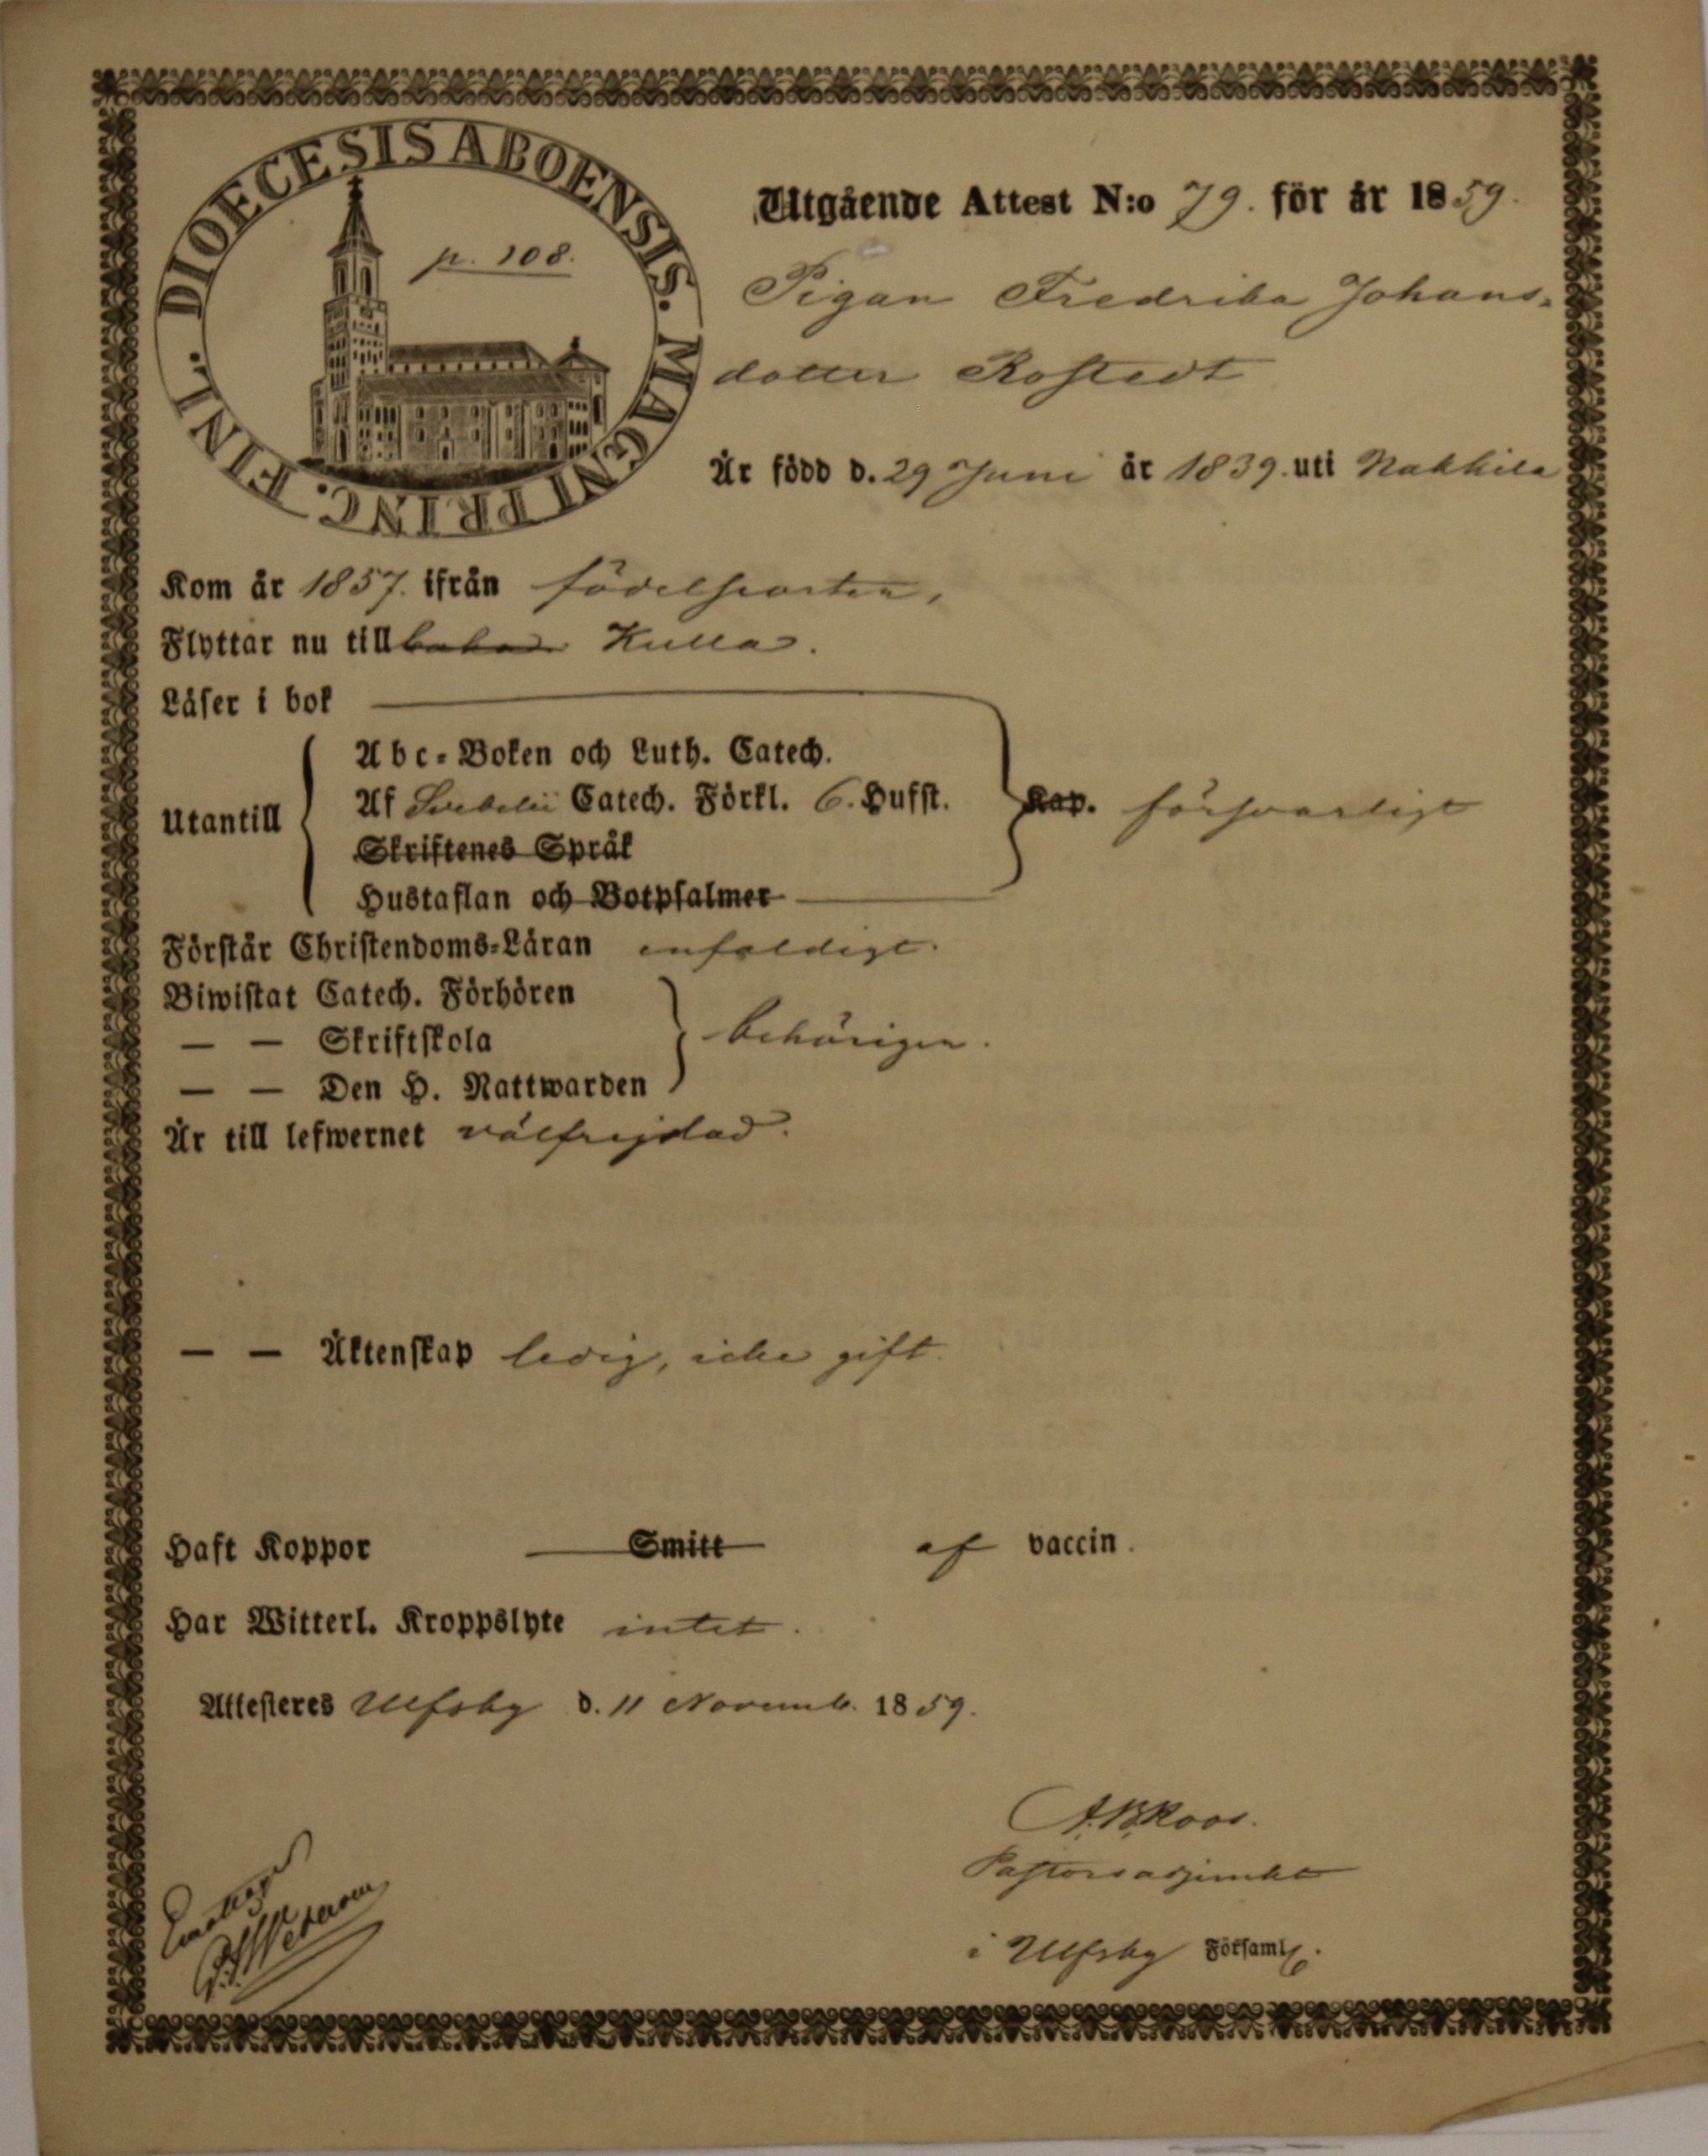 DIOECESIS ABOENSIS. MAGNI PRINC. FINL.
p. 108.
Utgående Attest N:o 79. för år 1859.
Pigan Fredrika Johans-
dotter Rostedt
Är född d. 29 Juni år 1839. uti Nakkila
Kom år 1857. ifrån födelseorten,
Flyttar nu till Kulla.
Läser i bok
Utantill
Abc-Boken och Luth. Catech.
Af Svebelii Catech. Förkl. 6. Hufst.
Kap. försvarligt
Skriftenes Språk
Hustaflan och Botpsalmer
Förstår Christendoms-Läran enfaldigt.
Biwistat Catech. Förhören
— — Skriftskola
behörigen.
— — Den H. Nattwarden
Är till lefwernet välfrejdad.
— — Äktenskap ledig, icke gift.
Haft Koppor Smitt af vaccin.
Har Witterl. Kroppslyte intet.
Attesteres Ulfsby d. 11 Novemb. 1859.
A. B. Roos.
Pastorsadjunkt
i Ulfsby Församlg.